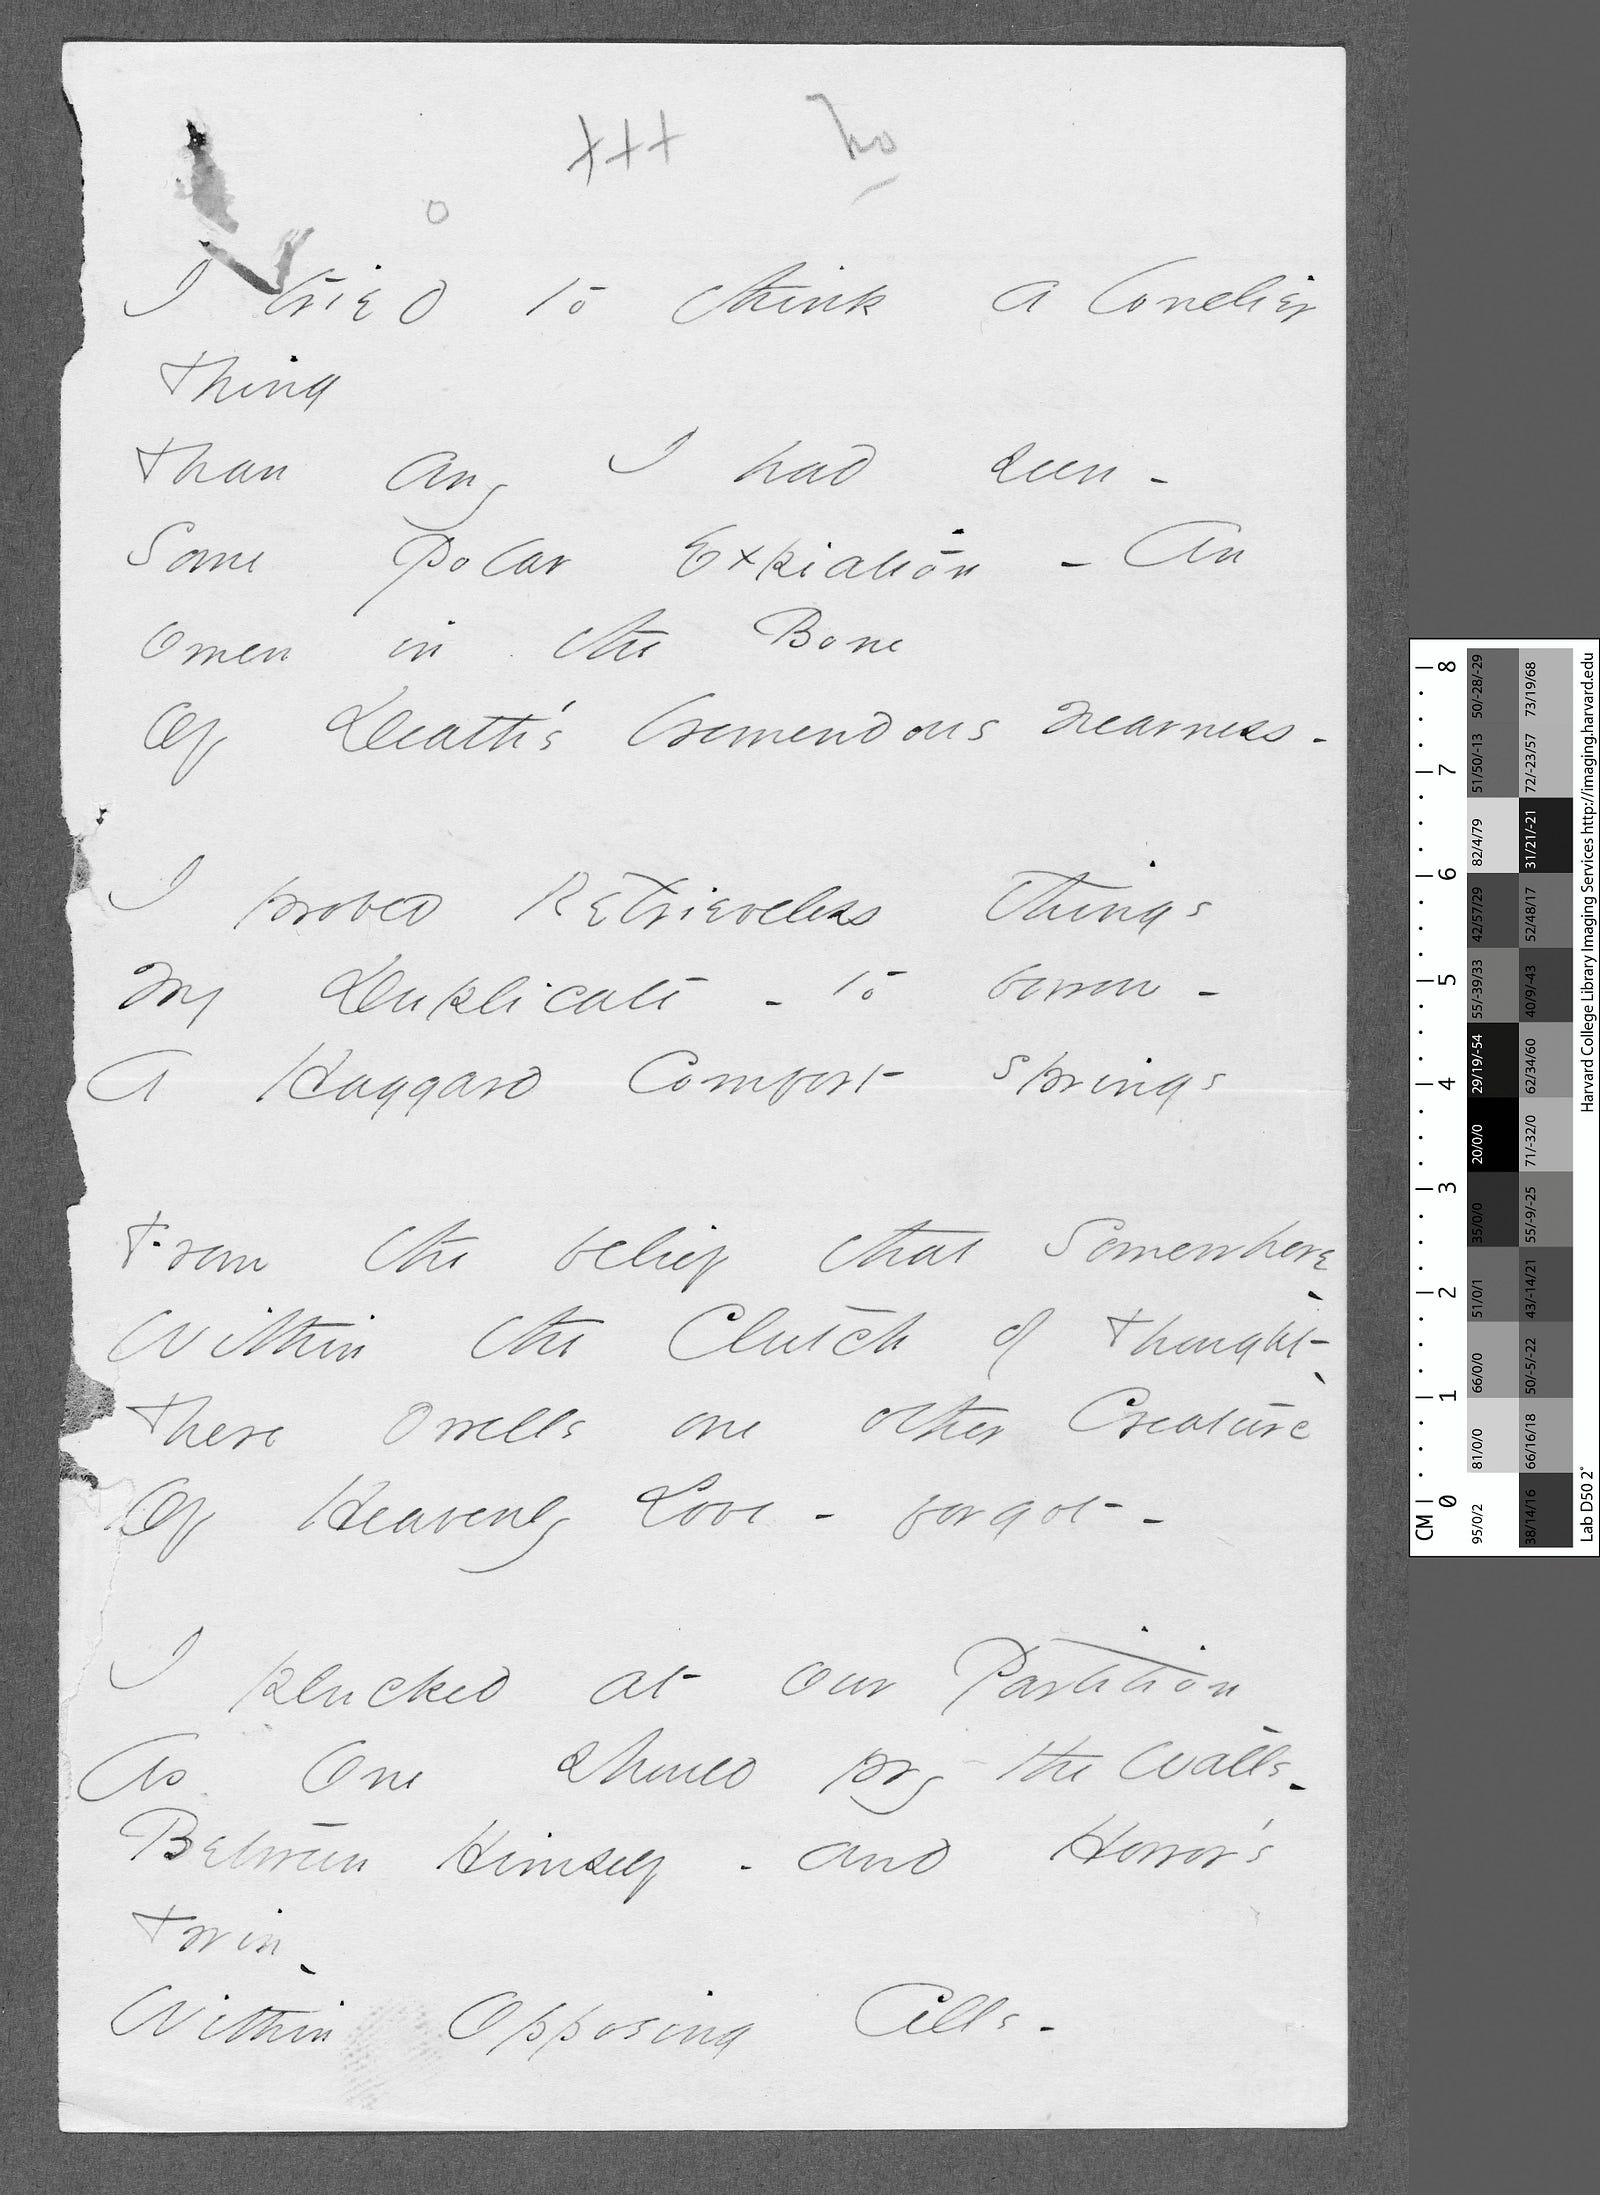 +++ no
o
I tried to think a lonelier
Thing
Than any I had seen -
Some Polar Expiation - An
Omen in the Bone
Of Death's tremendous nearness -
I probed Retrieveless things
My Duplicate - to borrow -
A Haggard Comfort springs
From the belief that Somewhere -
Within the Clutch of Thought -
There dwells one other Creature
Of Heavenly Love - forgot -
I plucked at our Partition
As One should pry the Walls -
Between Himself - and Horror's
Twin -
Within Opposing Cells -
CM 0 1 2 3 4 5 6 7 8
95/0/2 81/0/0 66/0/0 51/0/1 35/0/0 20/0/0 29/19/-54 55/-39/33 42/57/29 82/4/79 51/50/-13 50/-28/-29
38/14/16 66/16/18 50/-5/-22 43/-14/21 55/-9/-25 71/-32/0 62/34/60 40/9/-43 52/48/17 31/21/-21 72/-23/57 73/19/68
Lab D50 2° Harvard College Library Imaging Services http://imaging.harvard.edu